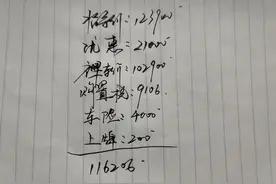 指导价:123900
优惠:21000
裸车价:102900
购置税:9106
车险:4000
上牌:200
116206